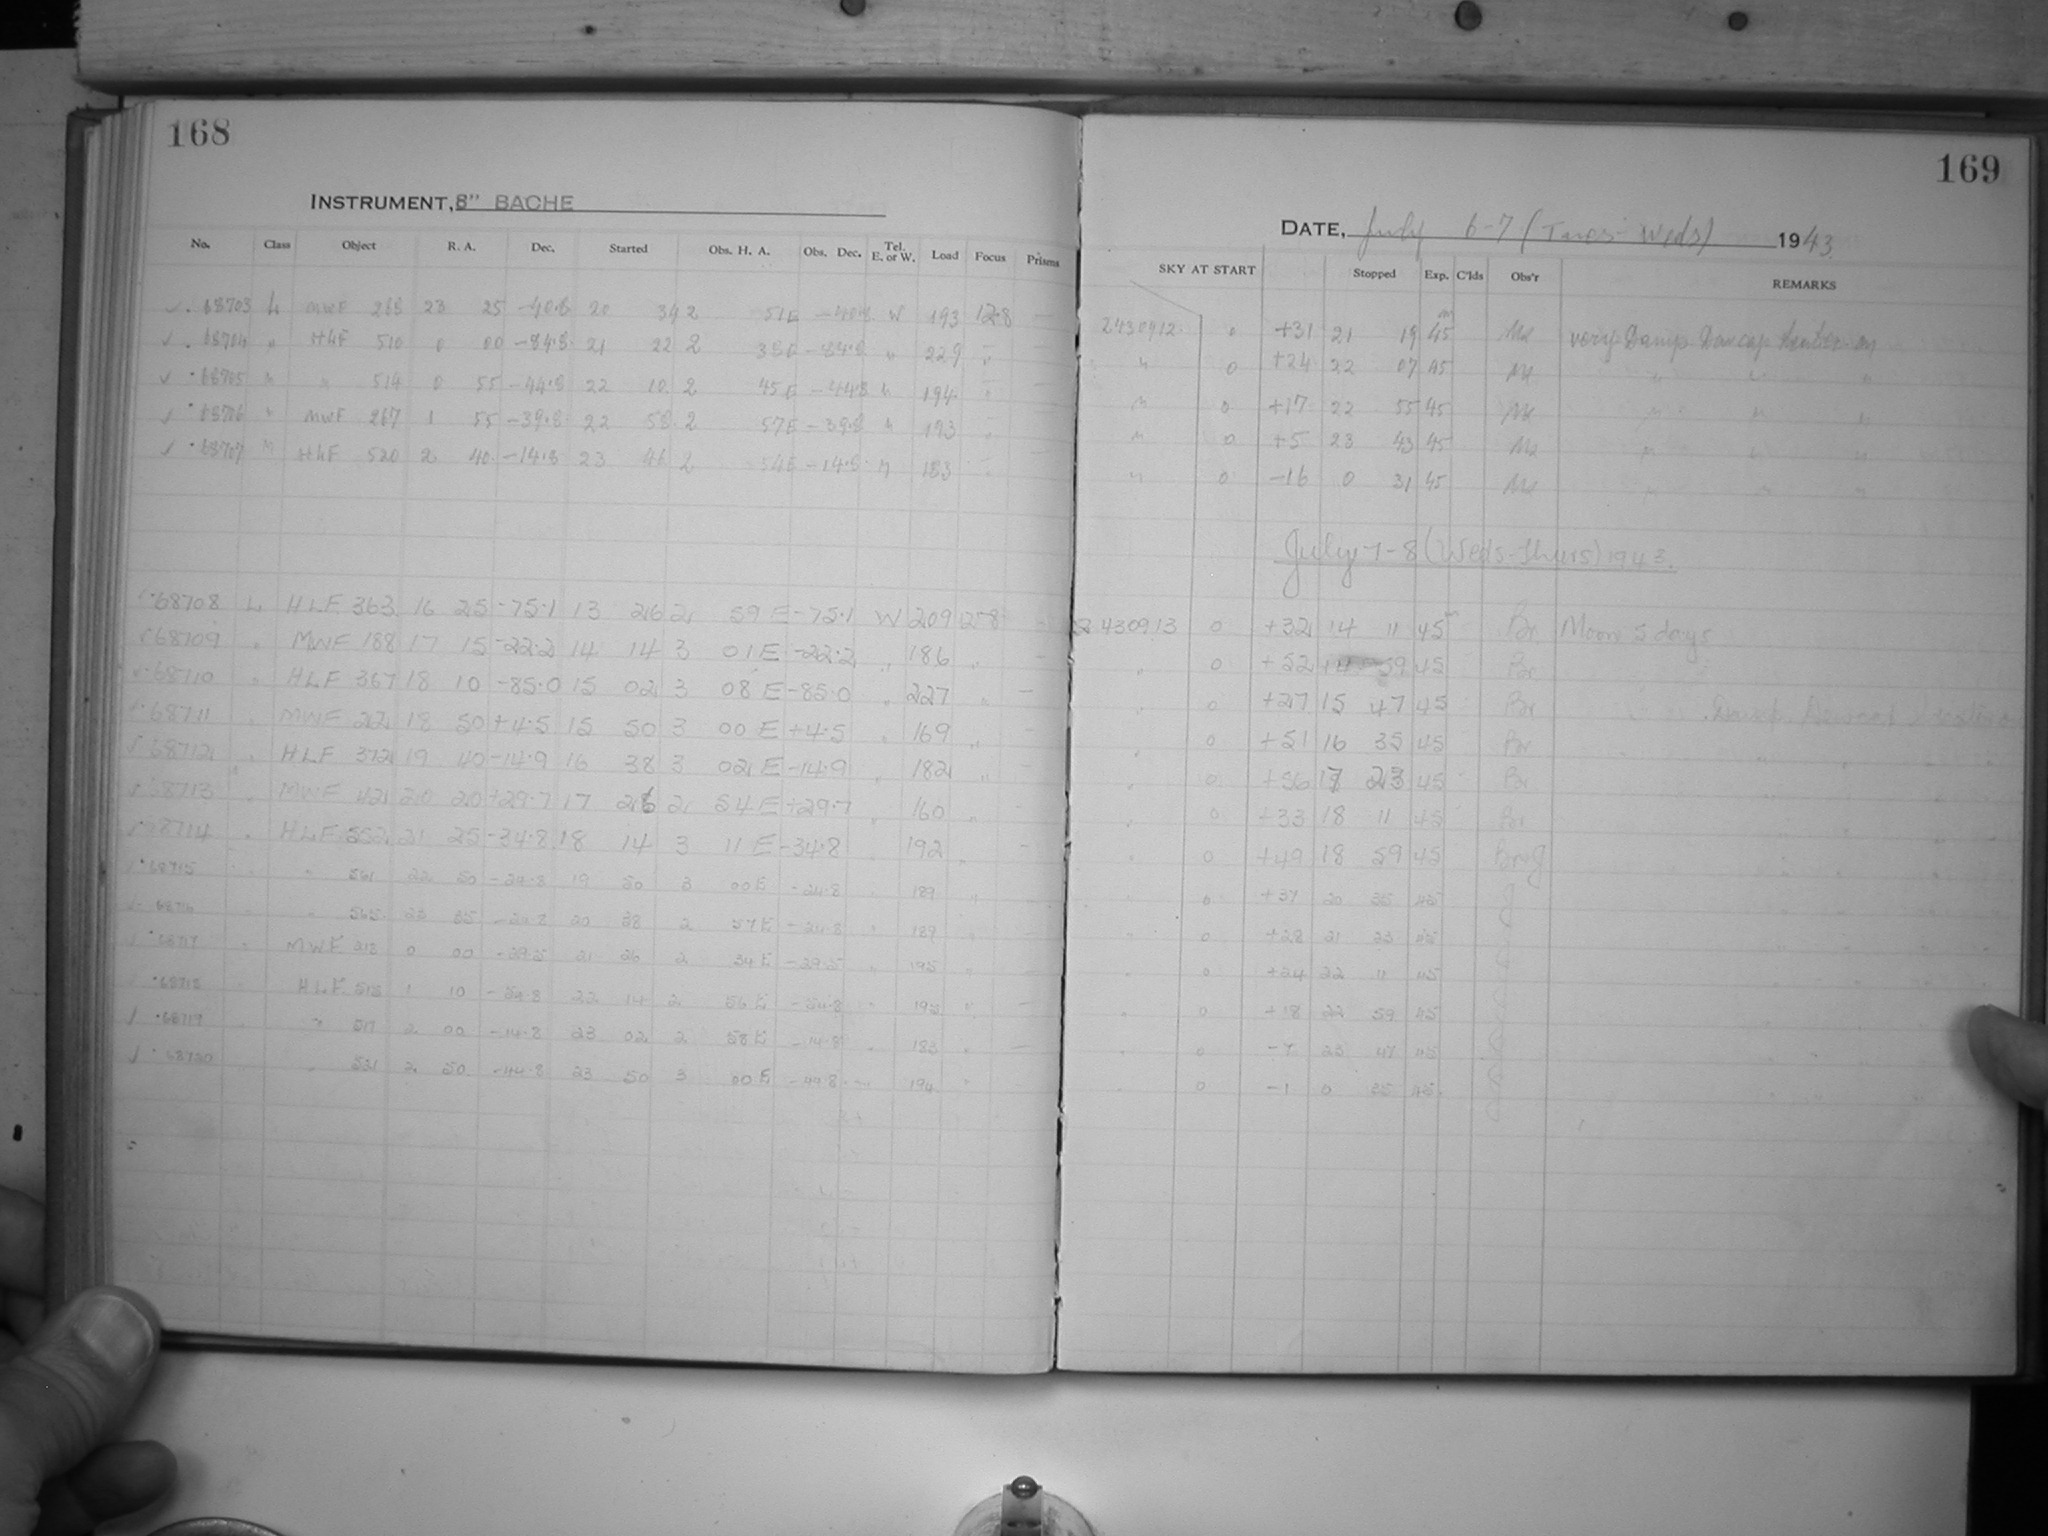 168
INSTRUMENT, 8" BACHE
No. Class Object R. A. Dec. Started Obs. H. A. Obs. Dec. Tel. E. or W. Load Focus Prisms
✓ . 68703 L MWF 268 23 25 -40.8 20 34 2 51E -40.8 W 193 12.8 -
✓ . 68704 " HLF 510 0 00 -84.8 21 22 2 38E -84.8 " 229 "
✓ . 68705 " " 514 0 55 -44.8 22 10 2 45E -44.8 " 194 "
✓ . 68706 " MWF 267 1 55 -39.8 22 58 2 57E -39.8 " 193 "
✓ . 68707 " HLF 520 2 40 -14.8 23 46 2 54E -14.8 " 183 "
✓ . 68708 L HLF 363 16 25 -75.1 13 26 2 59 E -75.1 W 209 -
✓ 68709 " MWF 188 17 15 -22.2 14 14 3 01 E -22.2 " 186 " -
✓ . 68710 " HLF 367 18 10 -85.0 15 02 3 08 E -85.0 " 227 " -
✓ . 68711 " MWF 18 50 +4.5 15 50 3 00 E +4.5 " 169 " -
✓ . 68712 " HLF 372 19 40 -14.9 16 38 3 02 E -14.9 " 182 " -
✓ 68713 " MWF 20 20 +29.7 17 26 2 54 E +29.7 " 160 "
✓ 68714 " HLF 552 21 25 -34.8 18 14 3 11 E -34.8 " 192 " -
✓ . 68715 " " 561 22 50 19 50 3 00 E " 189 " -
✓ . 68716 " 565 23 35 20 38 2 57 E " 189 " -
✓ . 68717 " MWF 0 00 -29.5 21 26 2 34 E -29.5 " 195 " -
✓ . 68718 " HLF 515 1 10 22 14 2 56 E " "
✓ . 68719 " " 517 2 00 -14.8 23 02 2 58 E -14.8 " 183 " -
✓ . 68720 " 521 2 50 -44.8 23 50 3 00 E -44.8 194 "
169
DATE, July 6-7 (Tues-Weds) 1943
SKY AT START Stopped Exp. C'lds Obs'r REMARKS
2430912 0 +31 21 19 45 m very Damp Dewcap
" 0 +24 22 07 45 " " "
" 0 +17 22 55 45 " " "
" 0 +5 23 43 45 " " "
" 0 -16 0 31 45 " " "
July 7-8 (Weds-Thurs) 1943.
2430913 0 +32 14 11 45 m Br Moon 5 days
" 0 +52 14 59 45 Br
" 0 +27 15 47 45 Br
" 0 +51 16 35 45 Br
" 0 +56 17 23 45 Br
" 0 +33 18 11 45 Br
" 0 +49 18 59 45
" 0 +37 20 35 45
" 0 +28 21 23 45
" 0 +24 22 11 45
" 0 +18 22 59 45
" 0 -7 23 47 45
" 0 -1 0 35 45